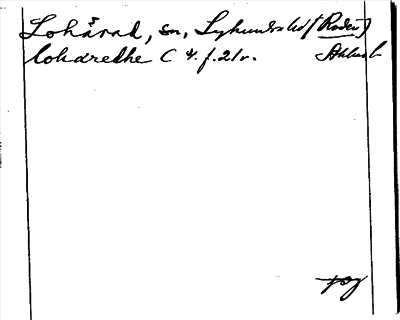 Lohärad, sn, Lyhundra hd (Roden)
lohæredhe C 4. f. 21v. Sthlms l